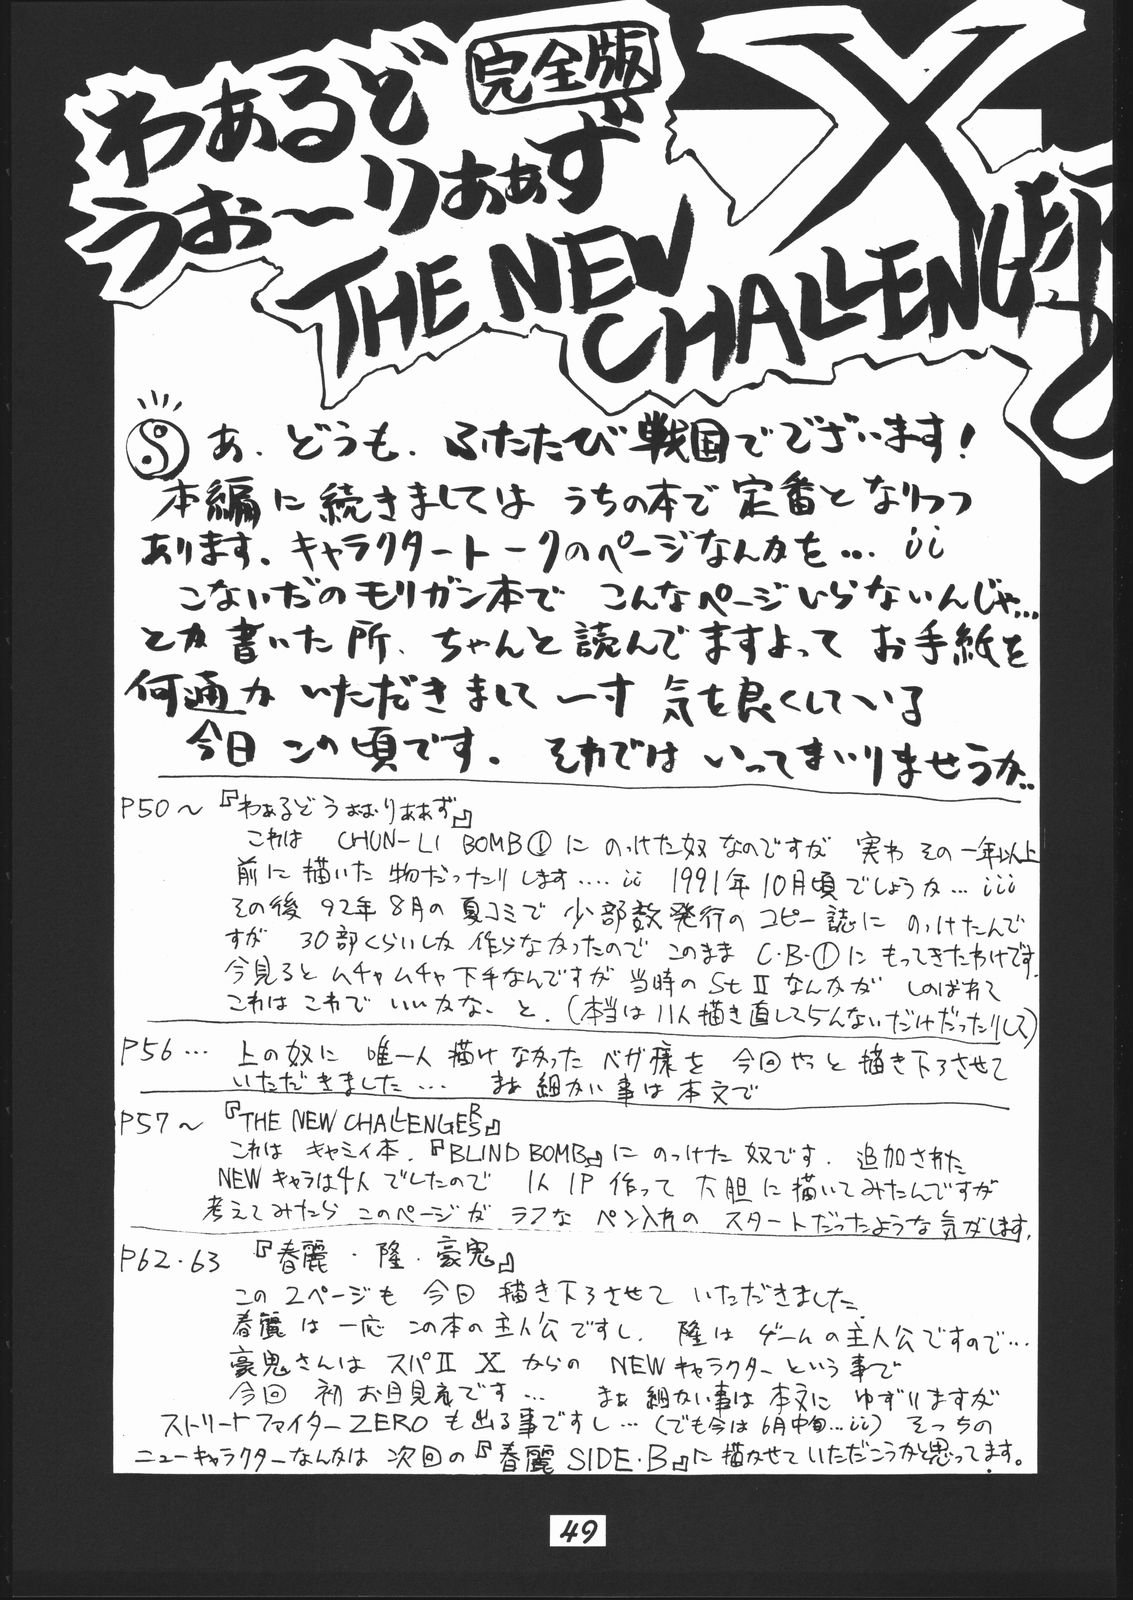 わぁるど 完全版
うぉ〜りああず X
THE NEW
CHALLENGERS
あ、どうも、ふたたび戦国でございます!
本編に続きましては うちの本で定番となりつつ
あります、キャラクタートークのページなんかを…ii
こないだのモリガン本で こんなページいらないんじゃ…
とか書いた所、ちゃんと読んでますよって お手紙を
何通か いただきまして 一寸 気を良くしている
今日この頃です。それでは いってまいりませうか..
P50〜『わぁるどうぉおりああず』
これは CHUN-LI BOMB①に のっけた奴なのですが 実わ その一年以上
前に描いた物だったりします....ii 1991年10月頃でしょうか…iii
その後 92年8月の夏コミで 少部数発行の コピー誌に のっけたんで
すが 30部くらいしか 作らなかったので このまま C・B・①に もってきたわけです。
今見ると ムチャムチャ下手なんですが 当時の St Ⅱなんかが しのばれて
これは これで いいかな、と。(本当は 11人描き直してらんないだけだったりして)
P56… 上の奴に 唯一人 描けなかった ベガ様を 今回やっと 描き下ろさせて
いただきました… まぁ 細かい事は 本文で
P57〜『THE NEW CHALLENGERS』
これは キャミィ本、『BLIND BOMB』に のっけた 奴です. 追加された
NEWキャラは4人でしたので 1人1P 作って 大胆に描いてみたんですが
考えてみたら このページが ラフな ペン入れの スタートだったような気がします.
P62・63 『春麗・隆・豪鬼』
この2ページも 今日 描き下ろさせて いただきました.
春麗は 一応 この本の主人公ですし、隆は ゲームの主人公ですので…
豪鬼さんは スパⅡ X からの NEWキャラクターという事で
今回 初お目見えです… まぁ 細かい事は 本文に ゆずりますが
ストリートファイターZEROも出る事ですし…(でも今は6月中旬…ii) そっちの
ニューキャラクターなんかは 次回の『春麗 SIDE・B』に描かせていただこうかと思ってます。
49